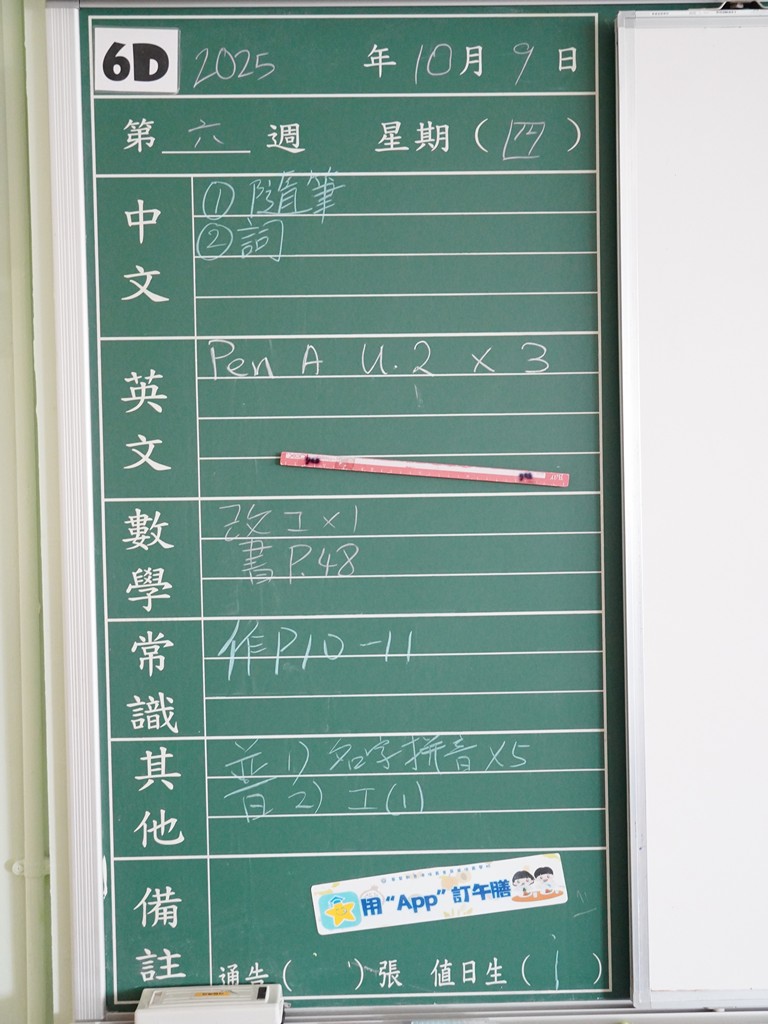 6D 2025 年 10 月 9 日
第 六 週 星期 ( 四 )
中文
① 隨筆
② 詞
英文
Pen A U.2 x 3
數學
改工 x 1
書 P.48
常識
作 P10-11
其他
普 1) 名字拼音 x5
2) 工(1)
備註
用“App”訂午膳
通告 ( ) 張 值日生 ( )